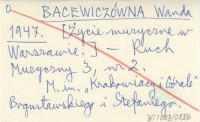 BACEWICZÓWNA Wanda
1947. [Życie muzyczne w
Warszawie.] – Ruch
Muzyczny 3, nr 2.
M. in. „Krakowiacy i Górale"
Bogusławskiego i Stefaniego.